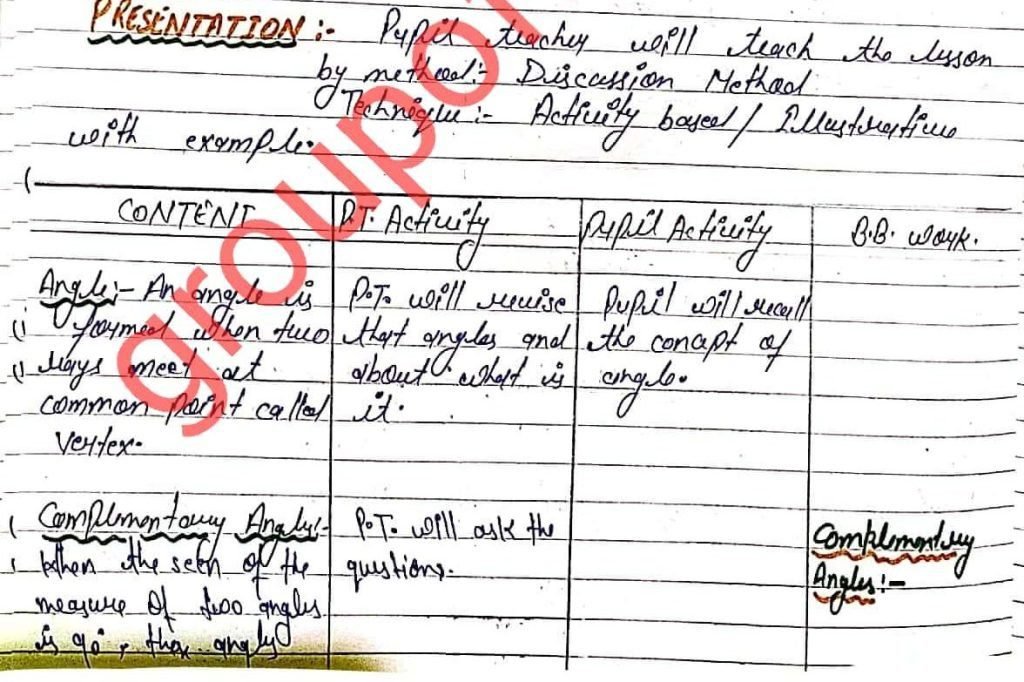 PRESENTATION :- Pupil teacher will teach the lesson
by method:- Discussion Method
Technique :- Activity based / Illustrative
with example.
CONTENT
Angle:- An angle is
formed when two
rays meet at
common point called
vertex.
Complementary Angles:-
When the seen of the
measure of two angles
is 90°, then angles
P.T. Activity
P.T. will revise
that angles and
about what is
it.
P.T. will ask the
questions.
Pupil Activity
Pupil will recall
the concept of
angle.
B.B. work.
Complementary
Angles:-
groupo